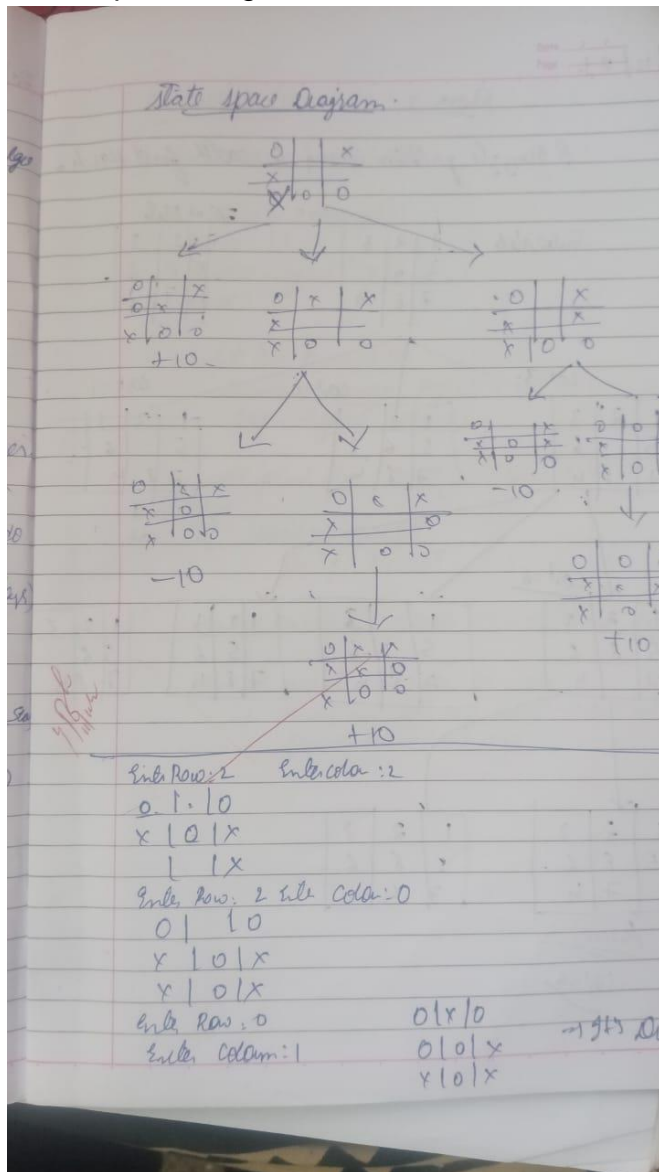 State space Diagram.
O | | X
X | |
X | O | O
O | | X
O | X |
X | O | O
+10
O | X | X
X | |
X | O | O
O | | X
X | | X
X | O | O
O | X | X
X | O |
X | O | O
-10
O | X | X
X | | O
X | O | O
O | | X
X | O | X
X | O | O
-10
O | O |
X | |
X | O |
O | X | X
X | X | O
X | O | O
+10
O | O |
X | X |
X | O |
+10
Enter Row: 2 Enter colom : 2
O | . | O
X | O | X
| | X
Enter Row: 2 Colom: 0
O | | O
X | O | X
X | O | X
Enter Row: 0
Enter Colom: 1
O | X | O
O | O | X
X | O | X
→ It's